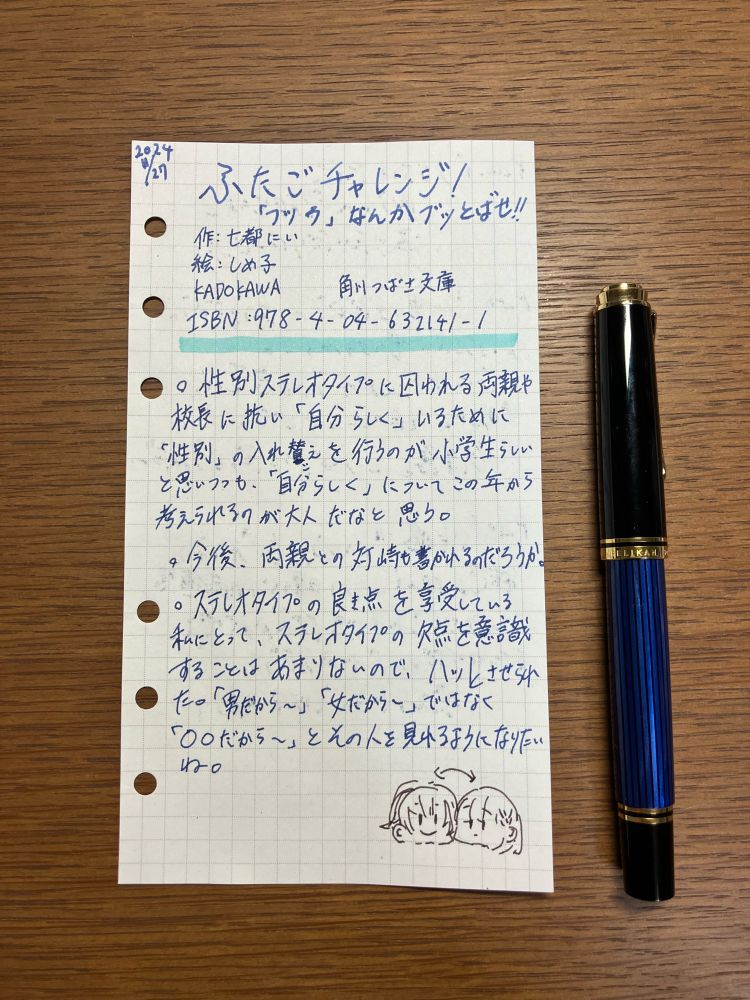 2024
11/27
ふたごチャレンジ!
「フツウ」なんかブッとばせ!!
作:七都にい
絵:しめ子
KADOKAWA 角川つばさ文庫
ISBN:978-4-04-632141-1
○ 性別ステレオタイプに囚われる両親や
校長に抗い「自分らしく」いるために
「性別」の入れ替えを行うのが小学生らしい
と思いつつも、「自分らしく」についてこの年から
考えられるのが大人だなと思う。
○ 今後、両親との対峙も書かれるのだろうか。
○ ステレオタイプの良き点を享受している
私にとって、ステレオタイプの欠点を意識
することはあまりないので、ハッとさせられ
た。「男だから〜」「女だから〜」ではなく
「○○だから〜」とその人を見れるようになりたい
ね。
PELIKAN